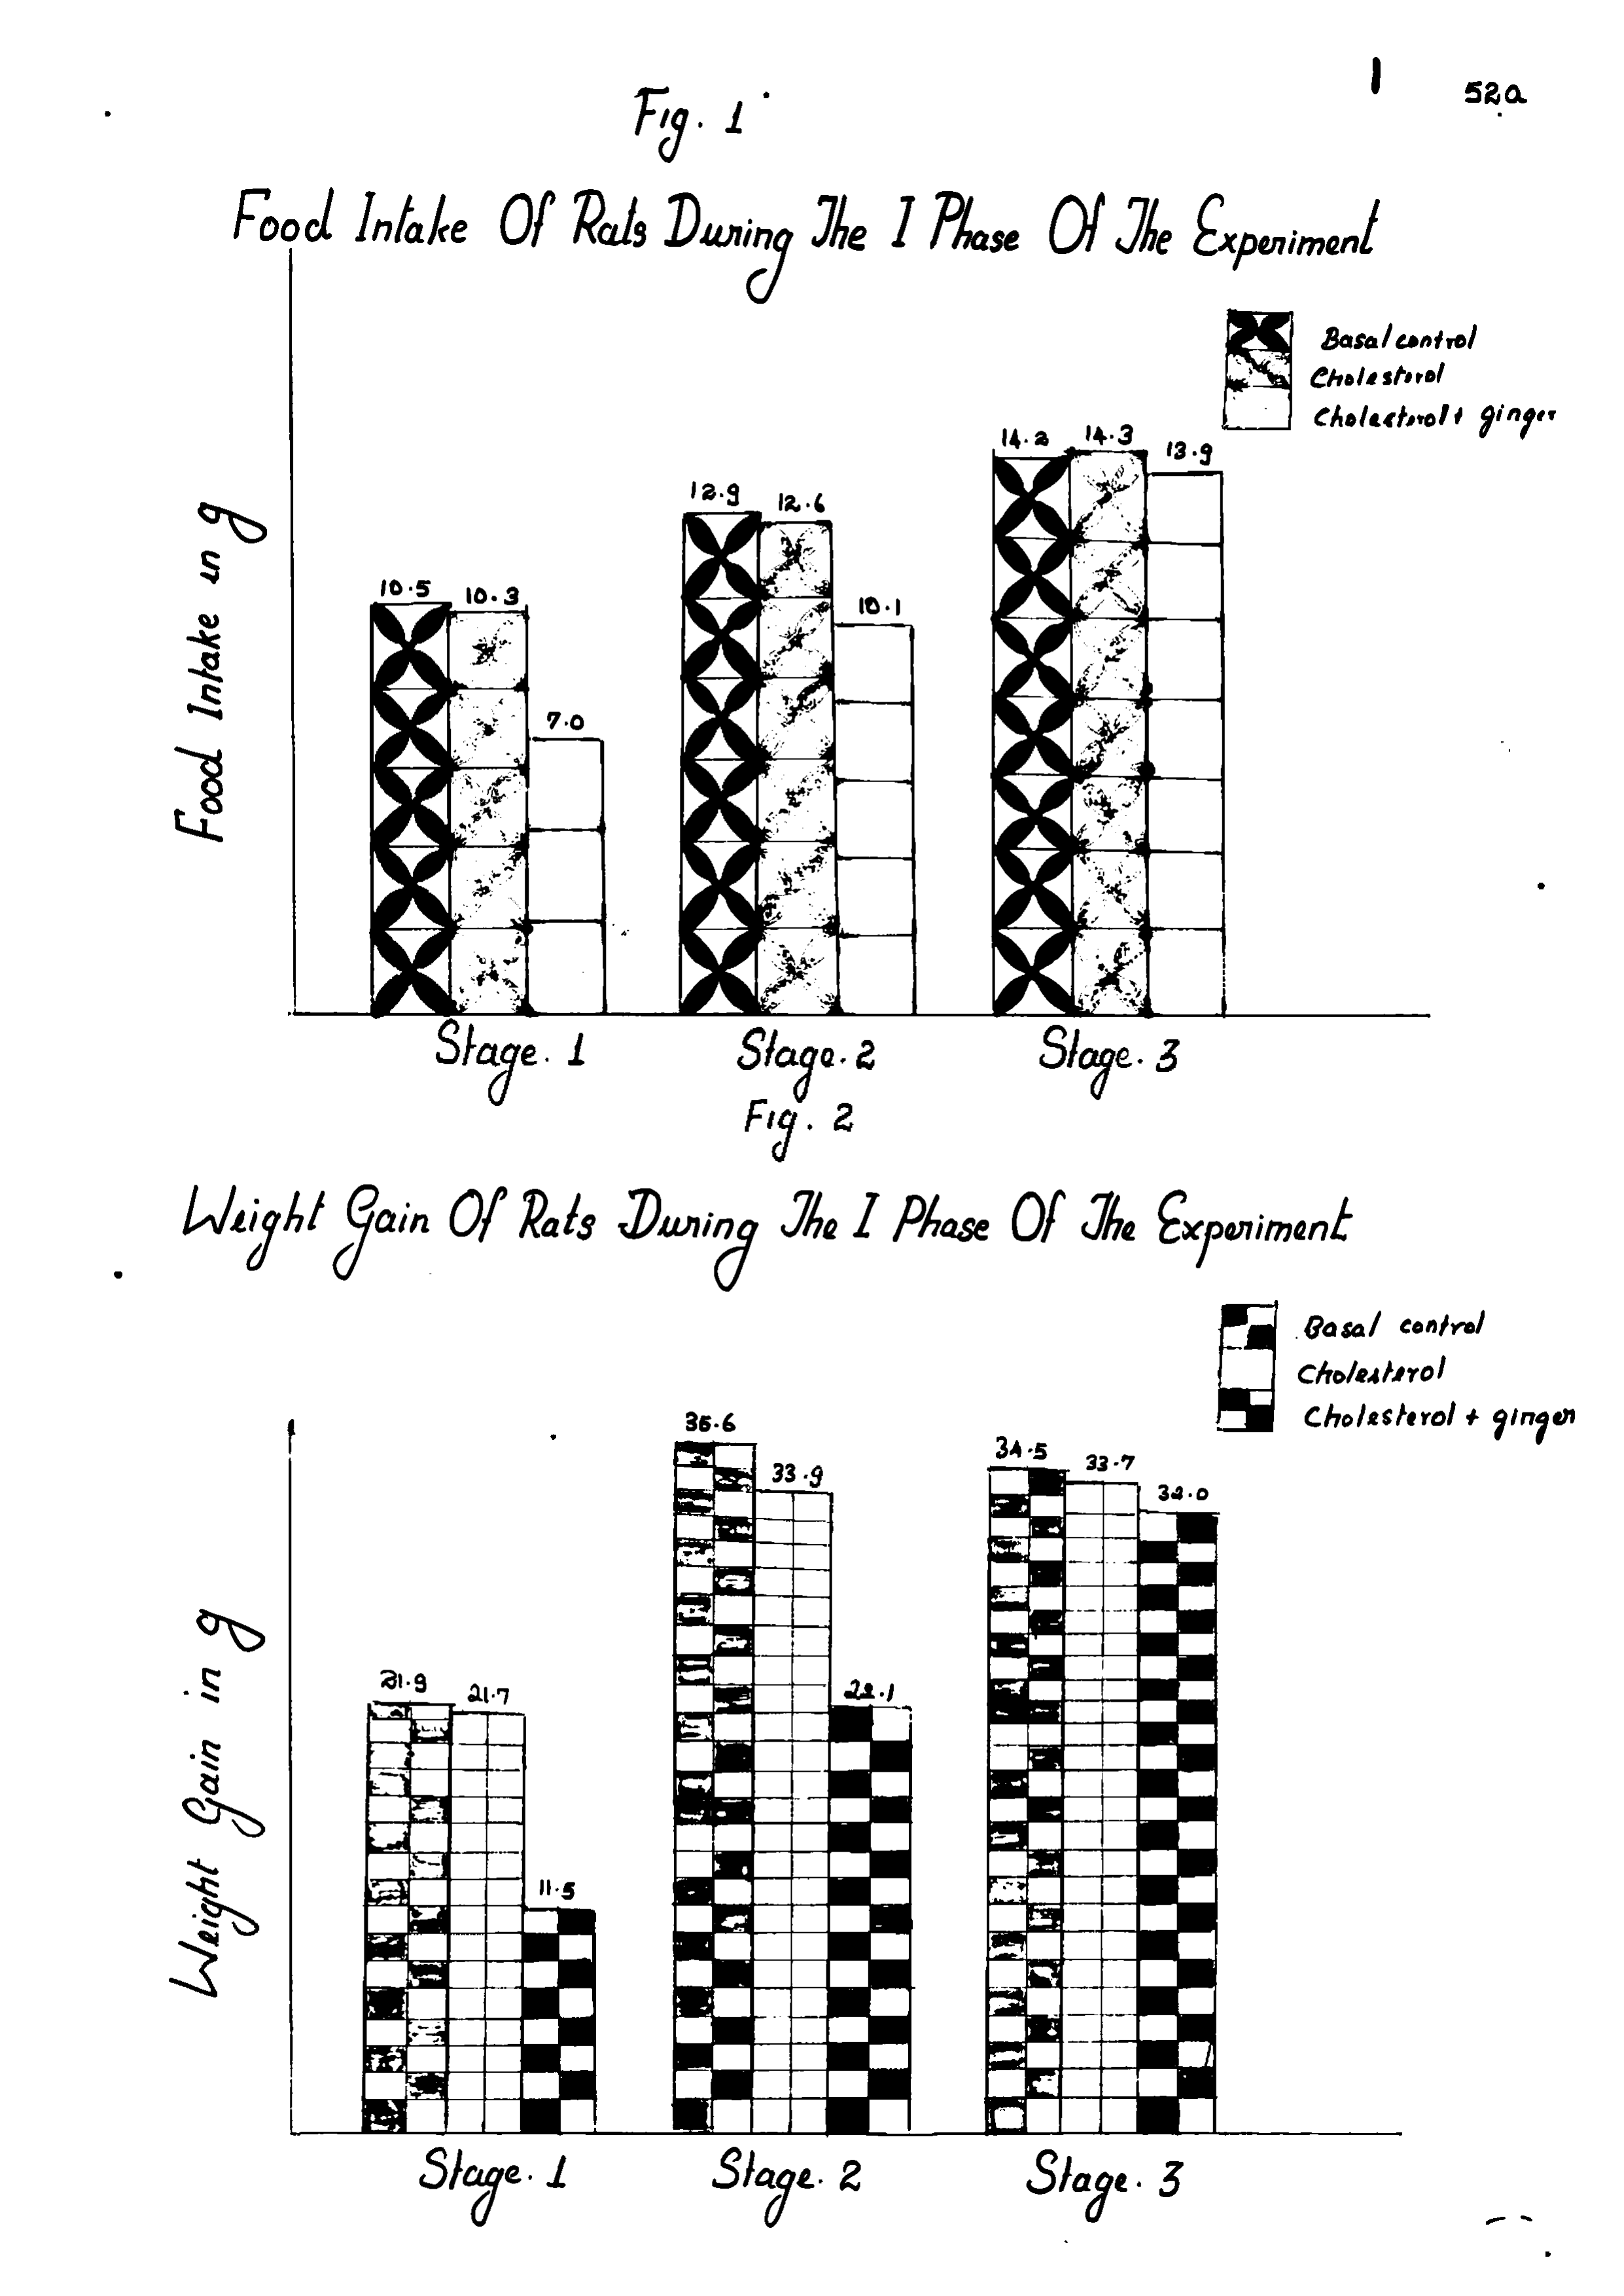 52a
Fig. 1
Food Intake Of Rats During The I Phase Of The Experiment
Basal control
Cholesterol
Cholesterol + ginger
Food Intake in g
10.5 10.3 7.0
12.9 12.6 10.1
14.2 14.3 13.9
Stage. 1 Stage. 2 Stage. 3
Fig. 2
Weight Gain Of Rats During The I Phase Of The Experiment
Basal control
Cholesterol
Cholesterol + ginger
Weight Gain in g
21.9 21.7 11.5
33.9 22.1
34.5 33.7 32.0
Stage. 1 Stage. 2 Stage. 3